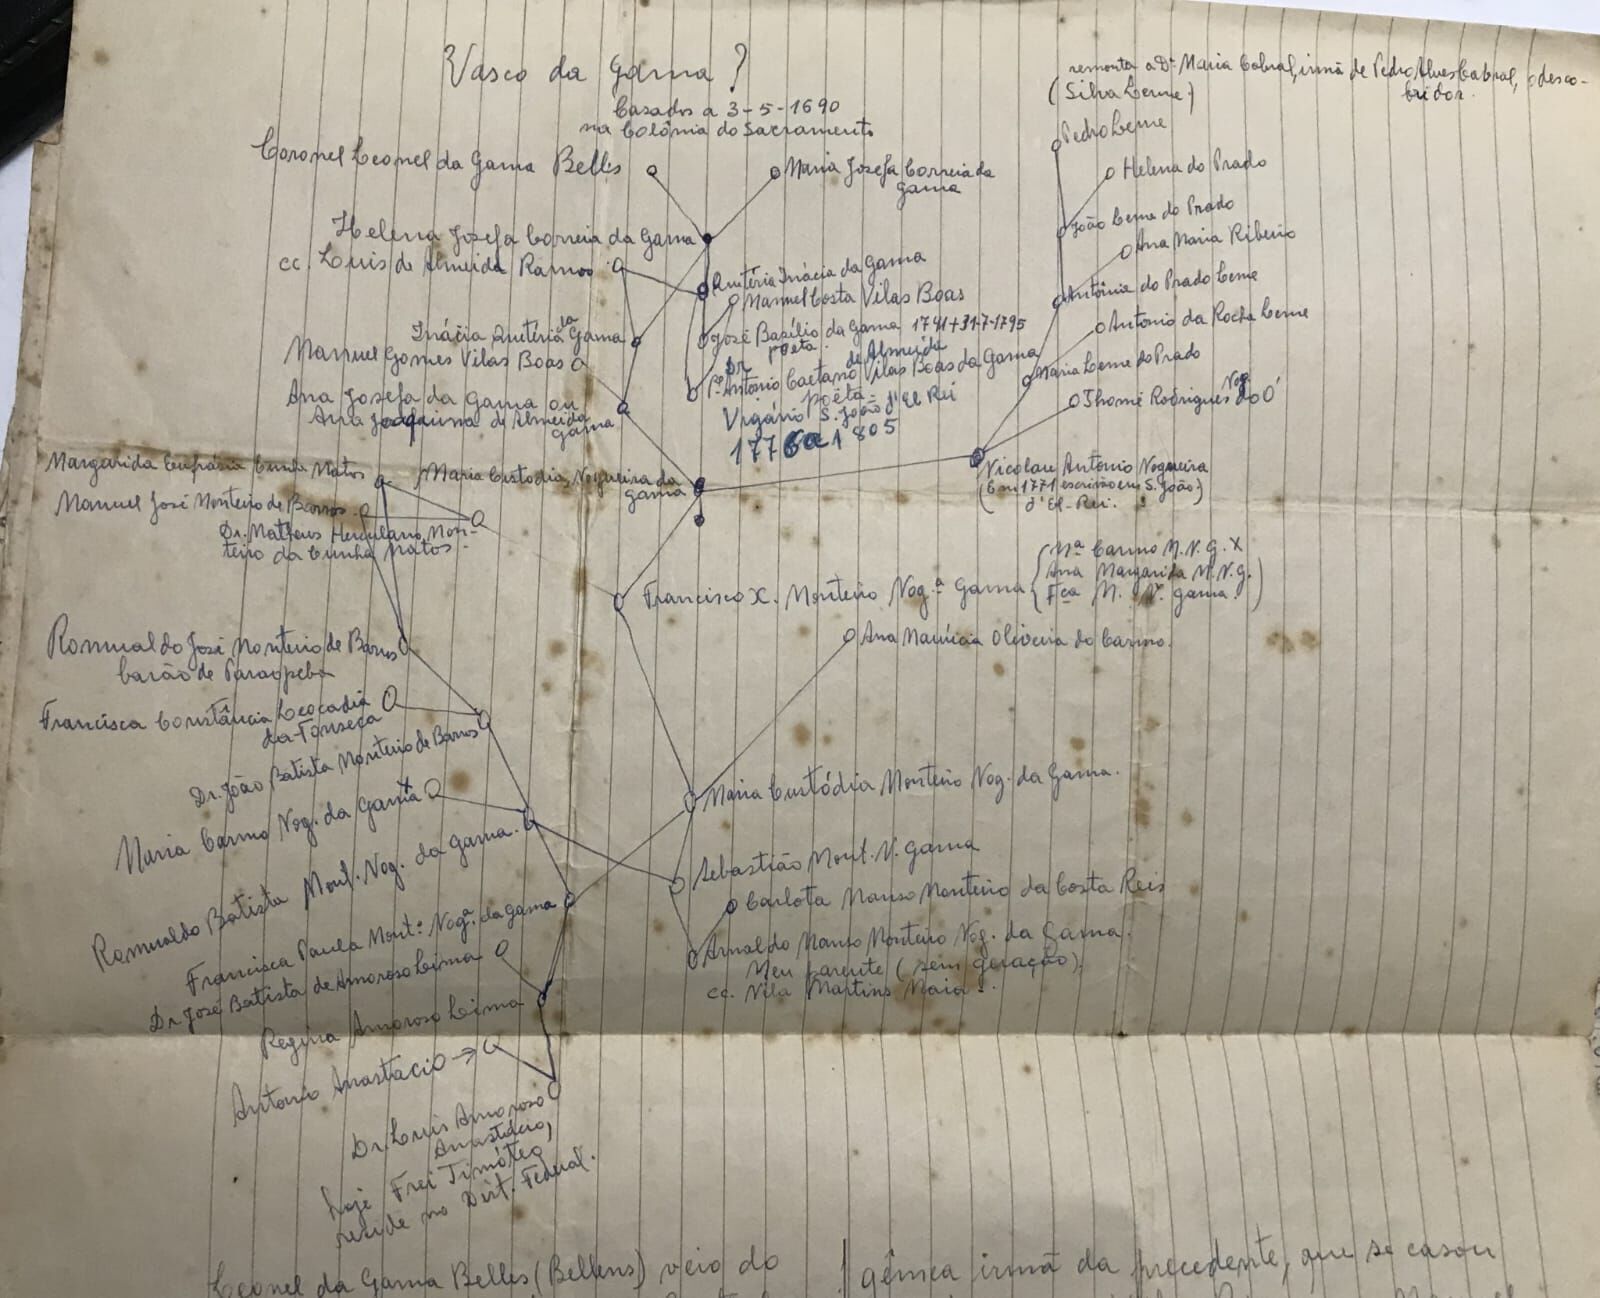 Vasco da Gama?
Casados a 3-5-1690
na Colônia do Sacramento
remonta a Dª Maria Cabral, irmã de Pedro Alves Cabral, o desco-
bridor.
(Silva Leme)
Coronel Leonel da Gama Bellis
Maria Josefa Correia da
Gama
Pedro Leme
Helena do Prado
João Leme do Prado
Ana Maria Ribeiro
Antônia do Prado Leme
Antonio da Rocha Leme
Maria Leme do Prado
Thomé Rodrigues Nog. do Ó
Nicolau Antonio Nogueira
(Em 1771 escrivão em S. João
d'El-Rei.)
Helena Josefa Correia da Gama
cc. Luis de Almeida Ramos
Quitéria Inácia da Gama
Manuel Costa Vilas Boas
José Basílio da Gama 1741+31-7-1795
poeta
Dr.
Pe. Antonio Caetano de Almeida Vilas Boas da Gama
poeta
Vigário S. João d'El Rei
1776 a 1805
Inácia Quitéria da Gama
Manuel Gomes Vilas Boas
Ana Josefa da Gama ou
Ana Joaquina de Almeida
Gama
Margarida Eufrásia Cunha Matos
Maria Custodia Nogueira da
Gama
Manuel José Monteiro de Barros
Dr. Matheus Herculano Mon-
teiro da Cunha Matos
Francisco X. Monteiro Nog.ª Gama
Mª Carmo M. N. G. X
Ana Margarida M. N. G.
Fca M. N. Gama
Ana Maurícia Oliveira do Carmo.
Romualdo José Monteiro de Barros
barão de Paraopeba
Francisca Constância Leocadia
da Fonseca
Dr. João Batista Monteiro de Barros
Maria Carmo Nog. da Gama X
Romualdo Batista Mont. Nog. da Gama.
Maria Custódia Monteiro Nog. da Gama.
Sebastião Mont. N. Gama
Carlota Manso Monteiro da Costa Reis
Arnaldo Manso Monteiro Nog. da Gama.
Meu parente (sem geração)
cc. Nila Martins Maia
Francisca Paula Montº Nogª da Gama
Dr. José Batista de Amoroso Lima
Regina Amoroso Lima
Antonio Anastacio →
Dr. Luis Amoroso
Anastácio,
hoje Frei Timóteo,
reside no Dist. Federal.
Leonel da Gama Belles (Bellens) veio do
gêmea irmã da precedente, que se casou